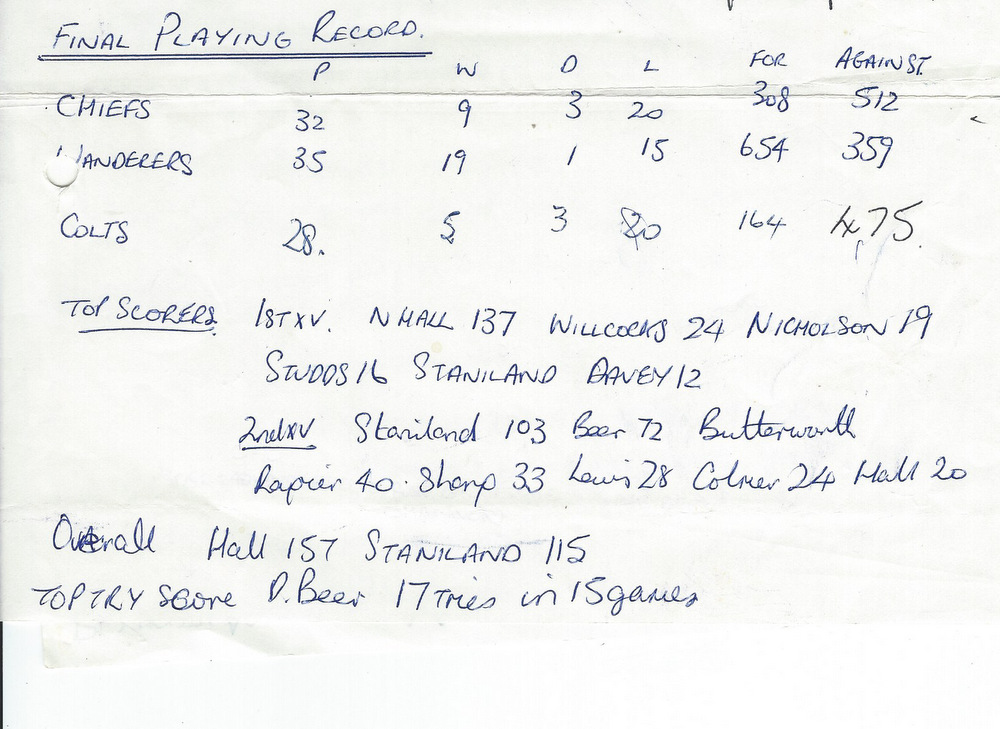 FINAL PLAYING RECORD.
P W D L FOR AGAINST.
CHIEFS 32 9 3 20 308 512
WANDERERS 35 19 1 15 654 359
COLTS 28. 5 3 20 164 475.
TOP SCORERS 1ST XV. N HALL 137 WILLCOCKS 24 NICHOLSON 19
STUDDS 16 STANILAND DAVEY 12
2nd XV Staniland 103 Beer 72 Butterworth
Rapier 40. Sharp 33 Lewis 28 Colmer 24 Hall 20
Overall Hall 157 STANILAND 115
TOP TRY Score D. Beer 17 Tries in 15 games